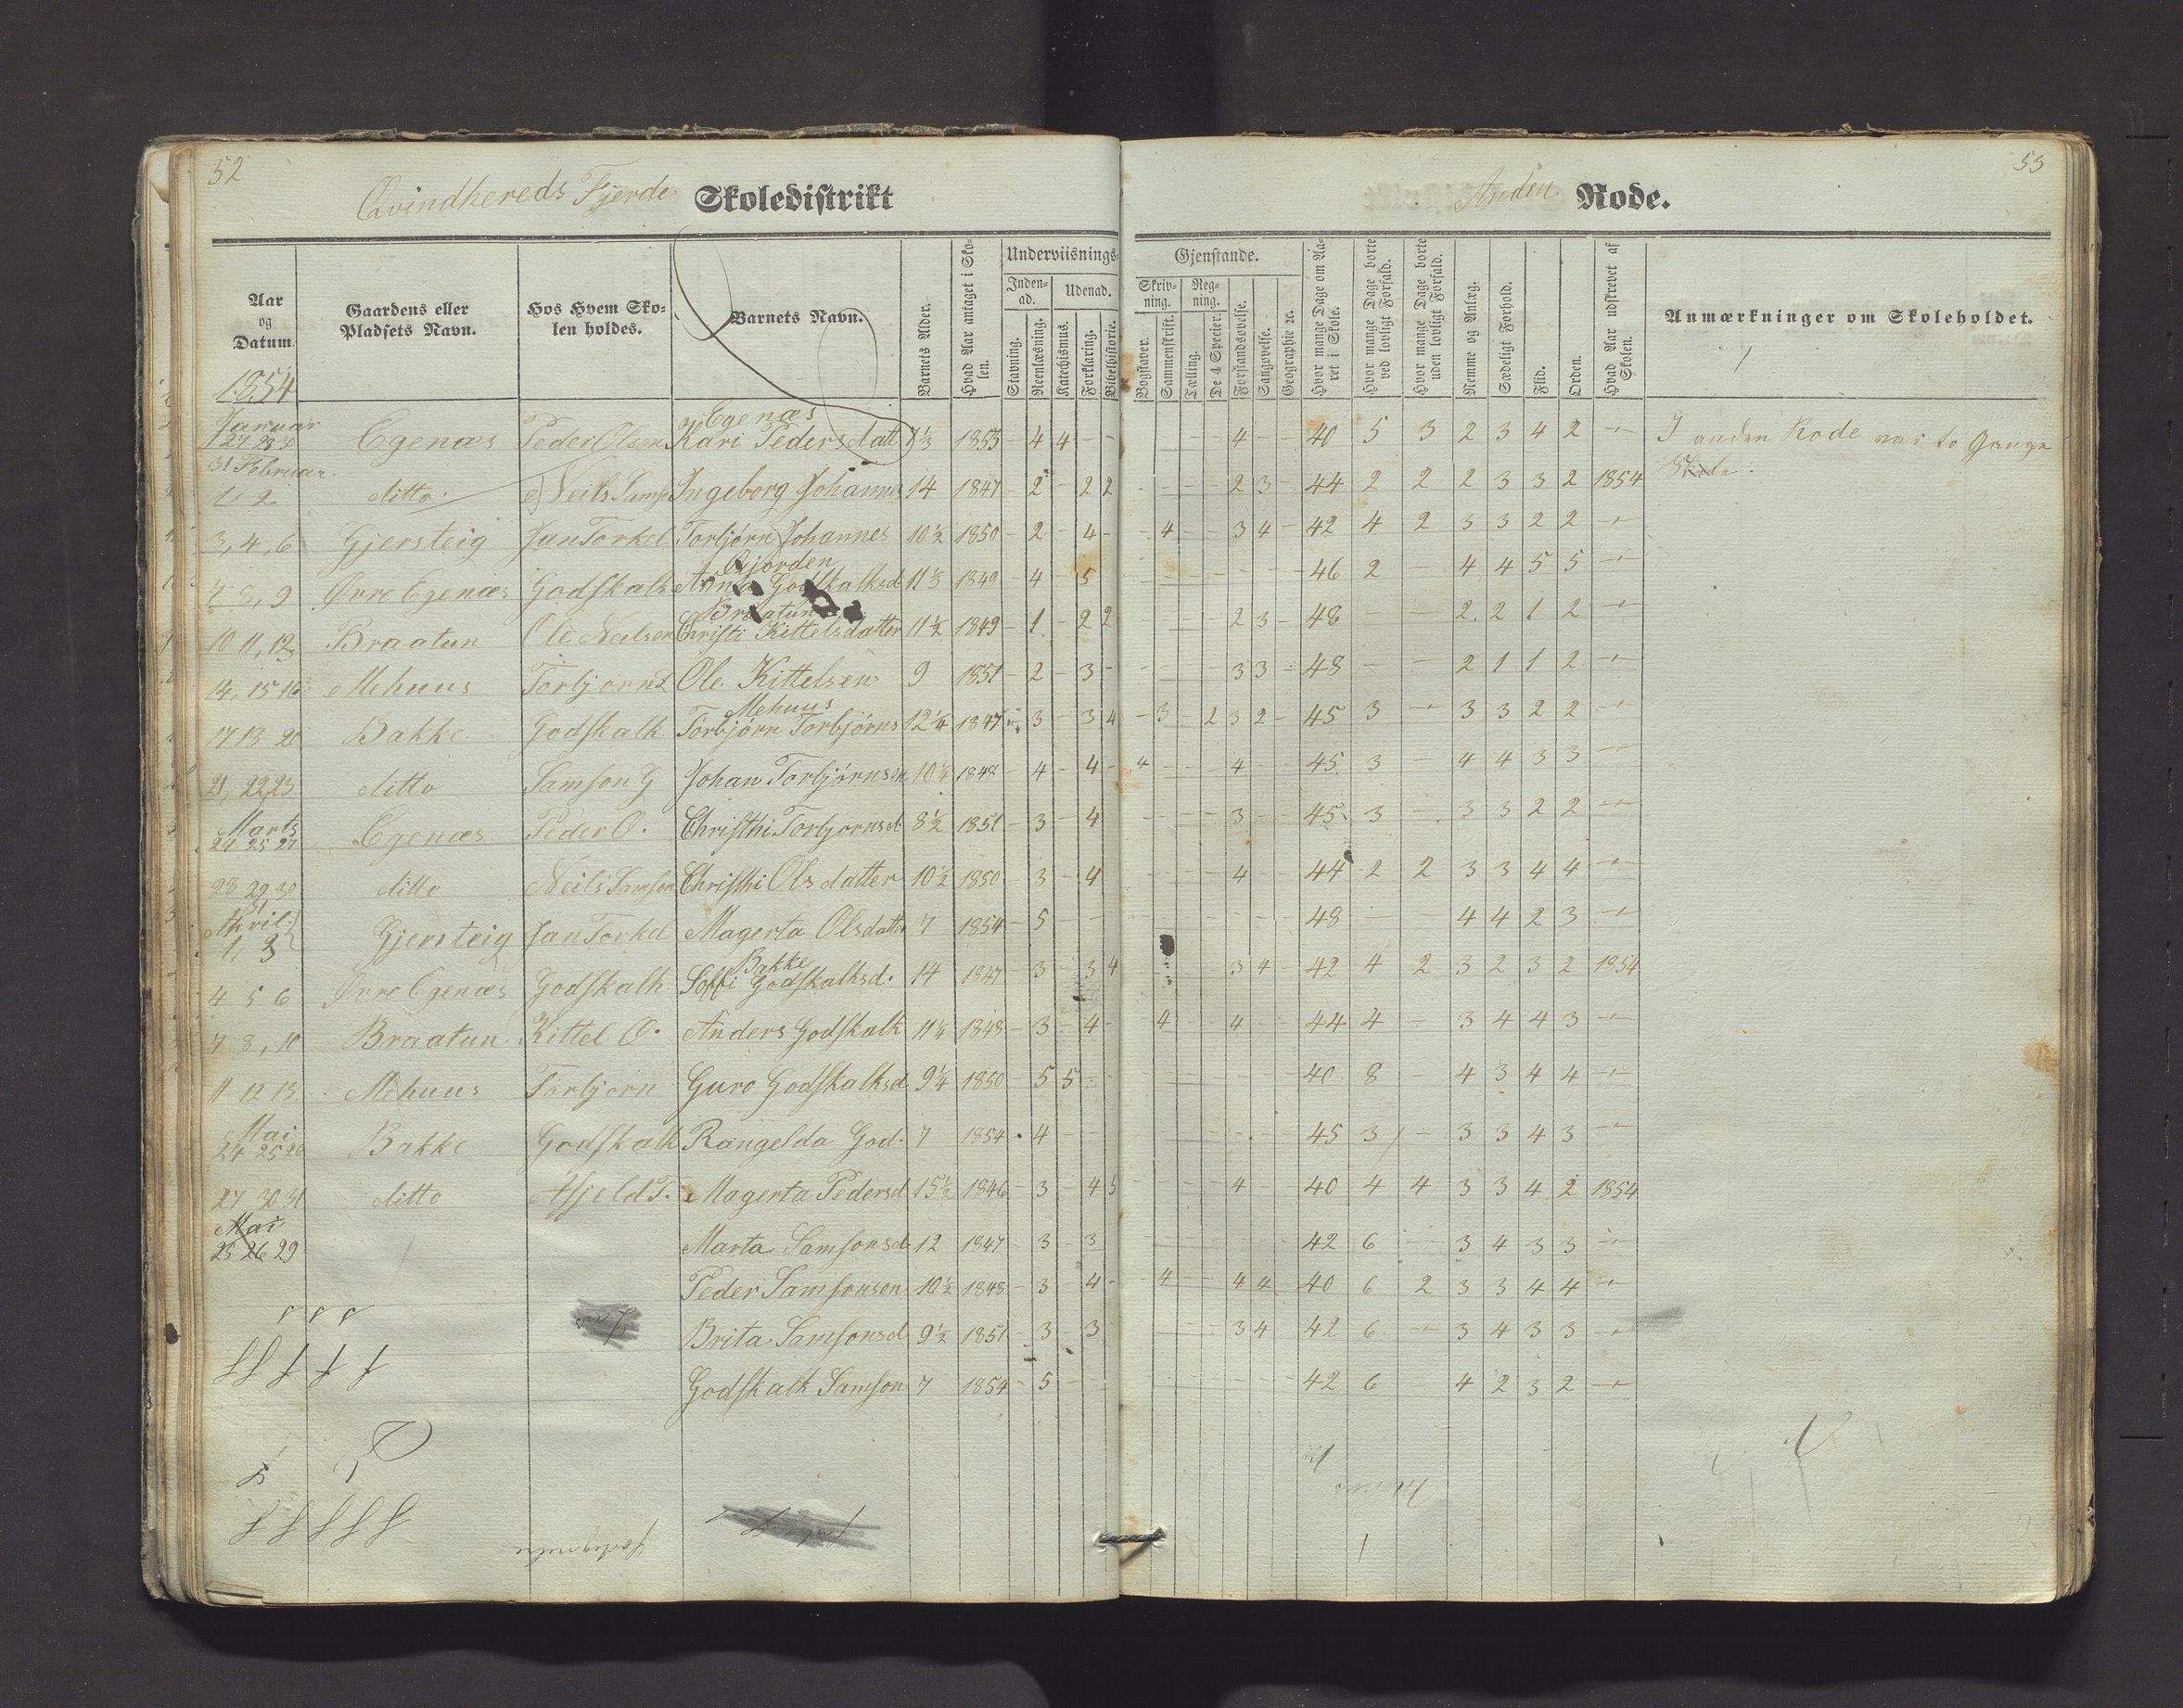 52
Qvindhereds Fjerde Skoledistrikt
Anden Rode.
53
Aar og Datum
Gaardens eller Pladsets Navn.
Hos Hvem Skolen holdes.
Barnets Navn.
Barnets Alder.
Hvad Aar antaget i Skolen.
Underviisnings-
Gjenstande.
Inden-ad.
Udenad.
Skriv-ning.
Reg-ning.
Stavning.
Reenlæsning.
Katechismus.
Forklaring.
Bibelhistorie.
Bogstaver.
Sammenskrift.
Tælling.
De 4 Specier.
Forstandsøvelse.
Sangøvelse.
Geographie ꝛc.
Hvor mange Dage om Aaret i Skole.
Hvor mange Dage borte ved lovligt Forfald.
Hvor mange Dage borte uden lovligt Forfald.
Nemme og Anlæg.
Sædeligt Forhold.
Flid.
Orden.
Hvad Aar udskrevet af Skolen.
Anmærkninger om Skoleholdet.
1854
Januar Egenæs
27 28 30 Egenæs Peder Olsen Kari Pedersdatt 1853 - 4 4 - - 4 - 40 5 3 2 3 4 2 I anden Rode var to Gange
31 Februar Skole.
1, 2 ditto Neils Samso Ingeborg Johannes 14 1847 - 2 - 2 2 - - - - 2 3 - 44 2 2 2 3 3 2 1854
3, 4, 6 Gjersteig Jan Torkel Torbjørn Johannes 10½ 1850 - 2 - 4 - - 4 - - 3 4 - 42 4 2 3 3 2 2
7 8, 9 Øvre Egenæs Godskalk Anna Godskalksd 1849 - 4 - 5 46 2 4 4 5 5
Braatun
10 11, 12 Braatun Ole Neilsen Christi Kittelsdatter 11½ 1849 - 1 - 2 2 2 3 - 48 - - 2 2 1 2
14, 15 16 Mehuus Torbjørn Ole Kittelsen 9 1851 - 2 - 3 - 3 3 - 48 - - 2 1 1 2
Mehuus
17 18 20 Bakke Godskalk Torbjørn Torbjørns 12¼ 1847 3 - 3 4 - 3 - 2 3 2 - 45 3 - 3 3 2 2
21, 22 23 ditto Samson G Johan Torbjørnsen 10¼ 1848 - 4 - 4 - 4 - - - 4 45 3 - 4 4 3 3
Marts
24 25 27 Egenæs Peder O. Christhi Torbjørnsd 8½ 1851 - 3 - 4 3 45 3 - 3 3 2 2
28 29 30 ditto Neils Samson Christhi Olsdatter 10½ 1850 - 3 - 4 4 44 2 2 3 3 4 4
31
April
1, 3 Gjersteig Jan Torkel Magerta Olsdatter 7 1854 - 5 - - 48 - 4 4 2 3
Bakke
4 5 6 Øvre Egenæs Godskalk Soffi Godskalksd. 14 1847 - 3 - 3 4 3 4 - 42 4 2 3 2 3 2 1854
7 8, 10 Braatun Kittel O. Anders Godskalk 11¼ 1848 - 3 - 4 - - 4 - - 4 44 4 - 3 4 4 3
11 12 13 Mehuus Torbjørn Guro Godskalksd 9¼ 1850 - 5 5 40 8 - 4 3 4 4
Mai
24 25 26 Bakke Godskalk Rangelda God. 7 1854 4 - - 45 3 - 3 3 4 3
27 30 31 ditto Magerta Pedersd 15½ 1846 - 3 - 4 5 4 - 40 4 4 3 3 4 2 1854
Mai
25 26 29 Marta Samsonsd 12 1847 - 3 - 3 42 6 - 3 4 3 3
Peder Samsonsen 10½ 1848 - 3 - 4 - - 4 - - 4 4 - 40 6 2 3 3 4 4
Brita Samsonsd 9½ 1851 - 3 - 3 3 4 42 6 - 3 4 3 3
Godskalk Samson 7 1854 - 5 - - 42 6 4 2 3 2